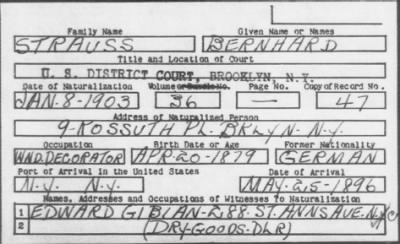 Family Name Given Name or Names
STRAUSS BERNHARD
Title and Location of Court
U. S. DISTRICT COURT, BROOKLYN, N.Y.
Date of Naturalization Volume or Bundle No. Page No. Copy of Record No.
JAN-8-1903 36 — 47
Address of Naturalized Person
9-KOSSUTH PL. BKLYN-N.Y.
Occupation Birth Date or Age Former Nationality
WND.DECORATOR APR-20-1879 GERMAN
Port of Arrival in the United States Date of Arrival
N.Y. N.Y. MAY-25-1896
Names, Addresses and Occupations of Witnesses To Naturalization
1 EDWARD GIBLAN-2188-ST.ANNS AVE. NYC
2 (DRY-GOODS-DLR)